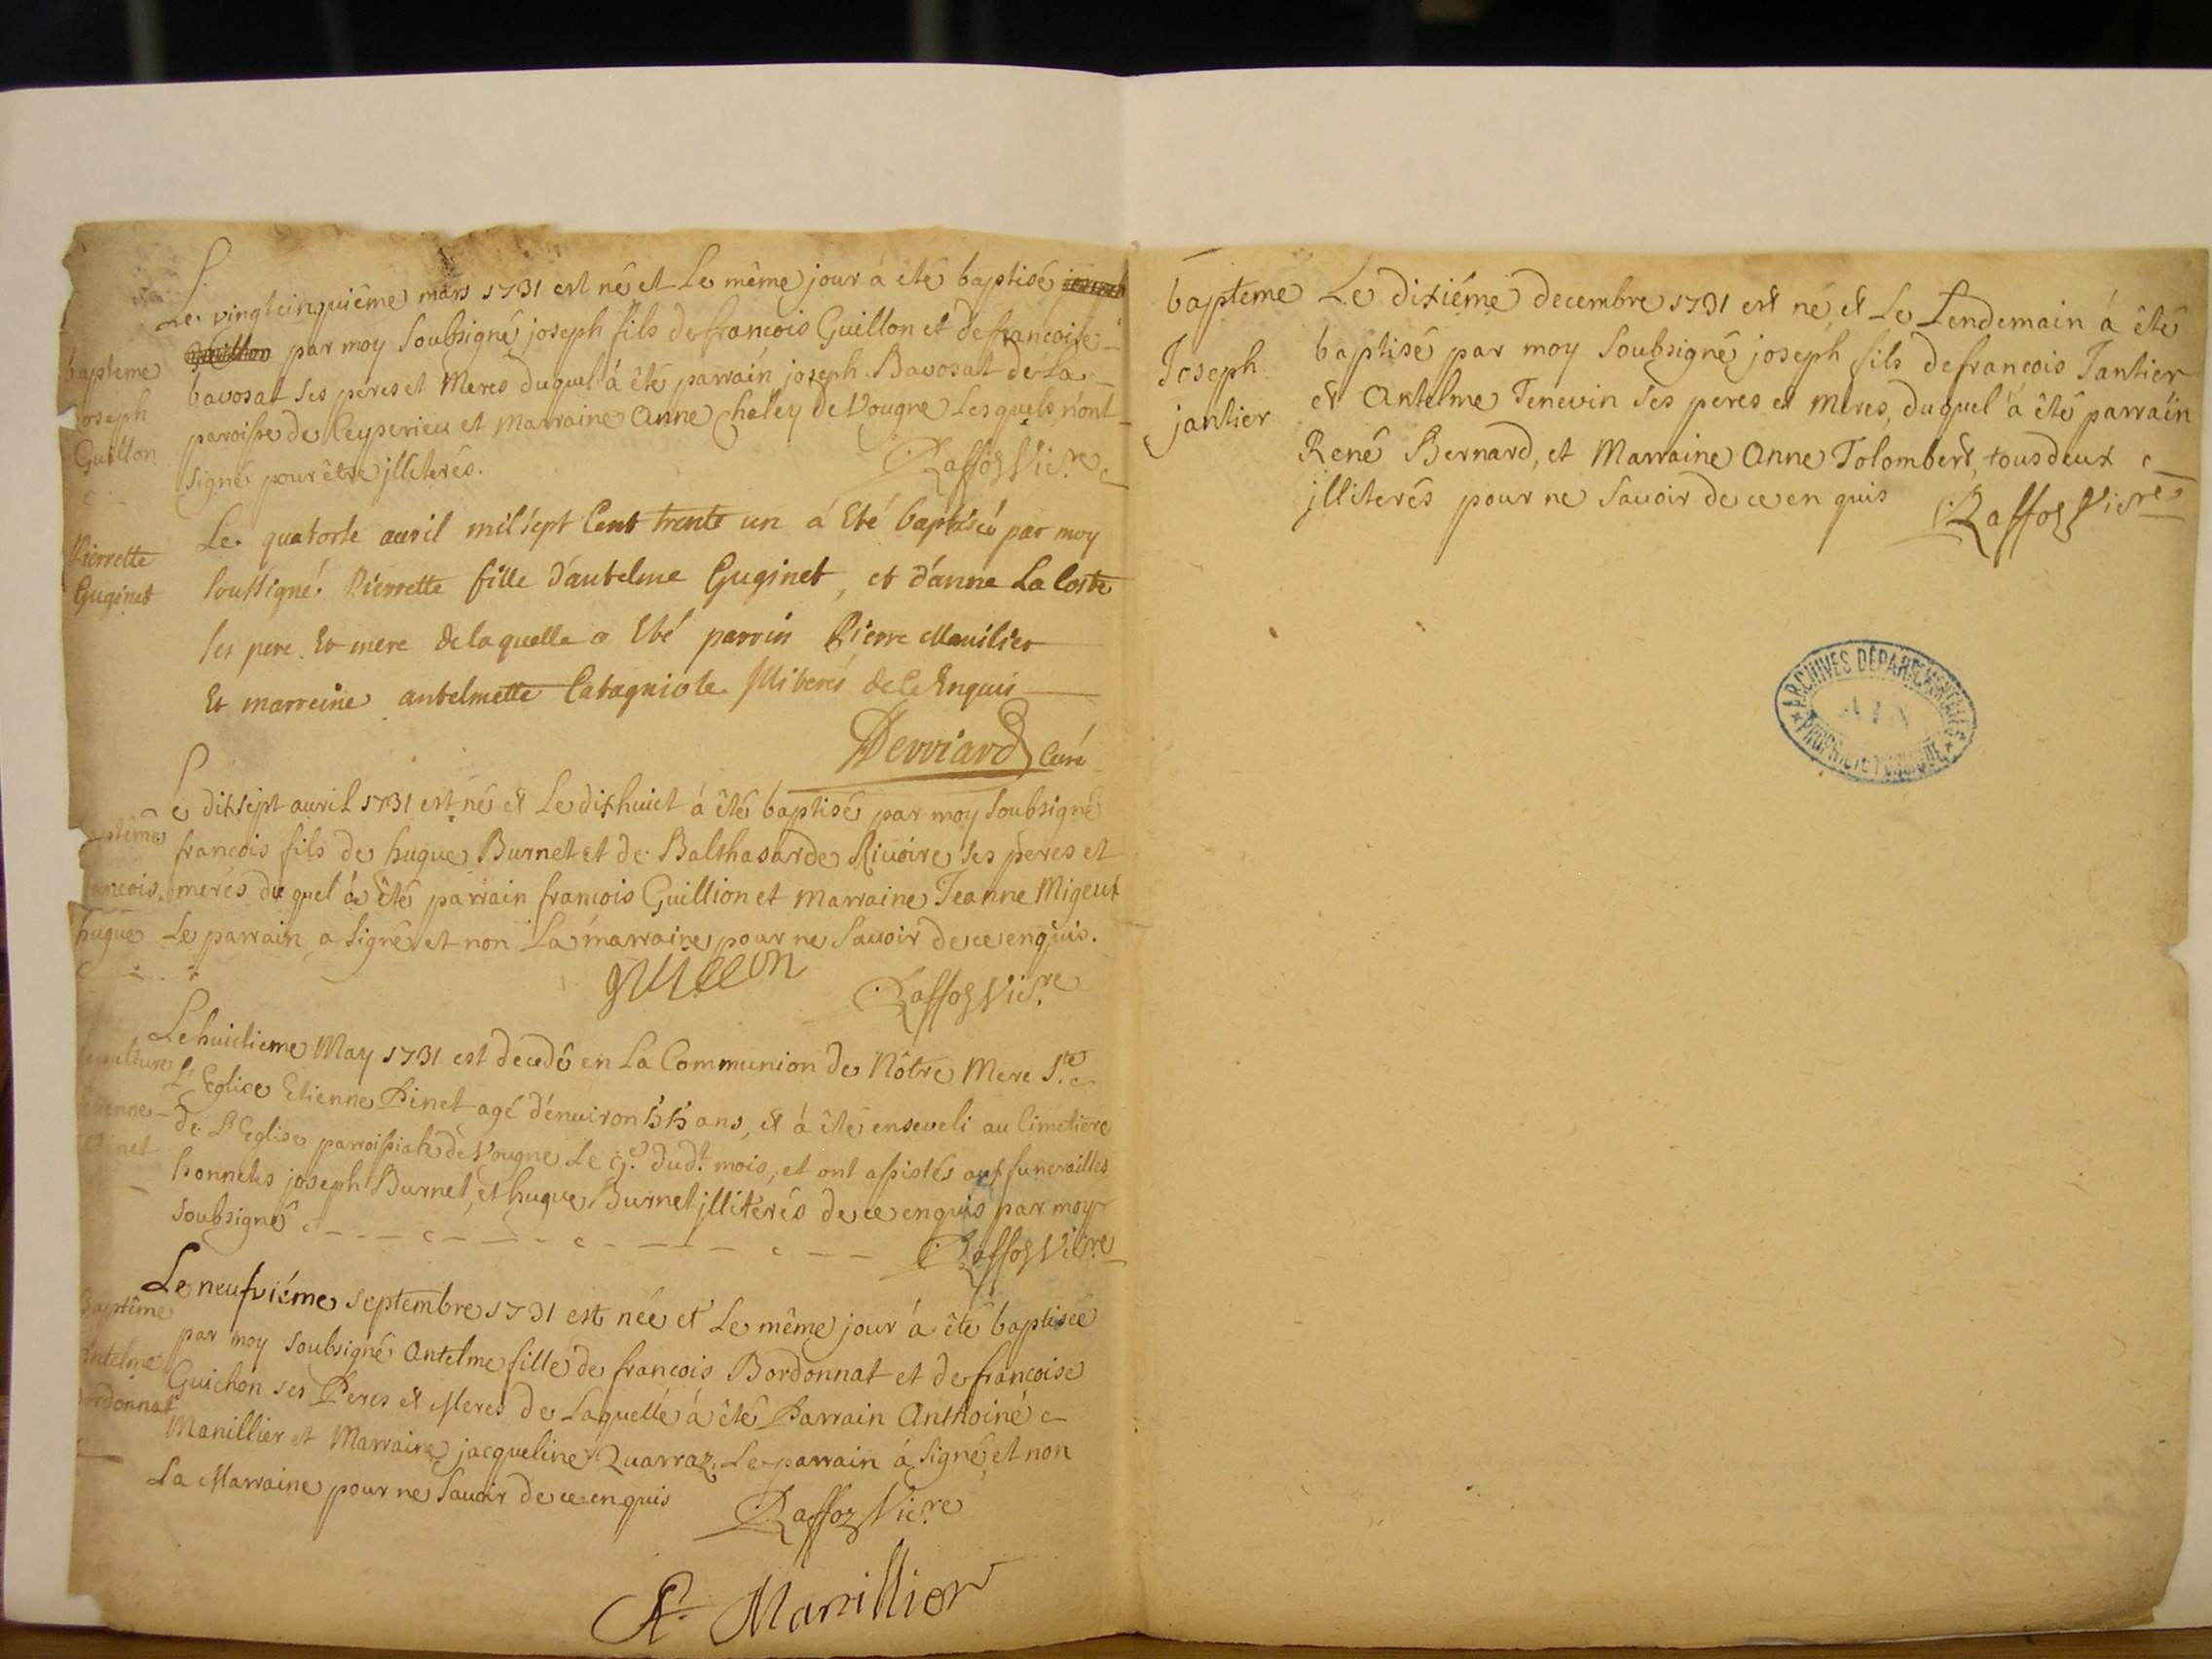 Le vingtcinquiême mars 1731 est né et Le même jour á êté baptisé joseph
Guillon par moy Soubsigné joseph fils de francois Guillon et de francoise
bavosat ses peres et Meres duquel á êté parrain joseph Bavosat de La
paroisse de Ceyserieu et Marraine Anne Chaley de Vougne Lesquels n'ont
signé pour être jlliterés. Raffoz Vic.re
bapteme
joseph
Guillon
Le quatorse auril mil sept Cent trente un á Eté baptisée par moy
soussigné Pierrette fille d'antelme Guginet, et d'anne La Coste
ses pere Et mere de laquelle a Eté parrin Pierre Manilier
Et marreine antelmette Catagniole Jlliterés de Ce Enquis
Derviard Curé
Pierrette
Guginet
Le dixsept auril 1731 est né et Le dixhuict á êté baptisé par moy soubsigné
francois fils de hugue Burnet et de Balthasarde Rivoire ses peres et
meres duquel á êté parrain francois Guillion et marraine Jeanne Migeux
Le parrain a signé et non La marraine pour ne Savoir de ce enquis.
guillon Raffoz Vic.re
baptême
francois
hugue
Le huictieme May 1731 est decedé en La Communion de Nôtre Mere S.te
L'Eglise Etienne Pinet agé d'environ 55 ans, et á êté enseveli au Cimetiere
de L'Eglise parroissiale de Vougne Le 9.e dud.t mois, et ont assistés aux funerailles
honnetes joseph Burnet, et hugue Burnet jlliterés de ce enquis par moy
soubsigné Raffoz Vic.re
sepulture
etienne
Pinet
Le neufviéme septembre 1731 est née et Le même jour á êté baptisée
par moy soubsigné Antelme fille de francois Bordonnat et de francoise
Guichon ses Peres et Meres de Laquelle á êté Parrain Anthoine
Manillier et Marraine jacqueline Quarraz, Le parrain á signé et non
La Marraine pour ne Savoir de ce enquis Raffoz Vic.re
A. Manillier
Baptême
antelme
Bordonnat
bapteme
Joseph
jantier
Le dixiéme decembre 1731 est né, et Le Lendemain á êté
baptisé par moy Soubsigné joseph fils de francois Jantier
et Antelme Tenevin ses peres et meres, duquel á êté parrain
René Bernard, et Marraine Anne Tolombert, tous deux
jlliterés pour ne Savoir de ce enquis Raffoz Vic.re
ARCHIVES DÉPARTEMENTALES
AIN
PROPRIÉTÉ PUBLIQUE